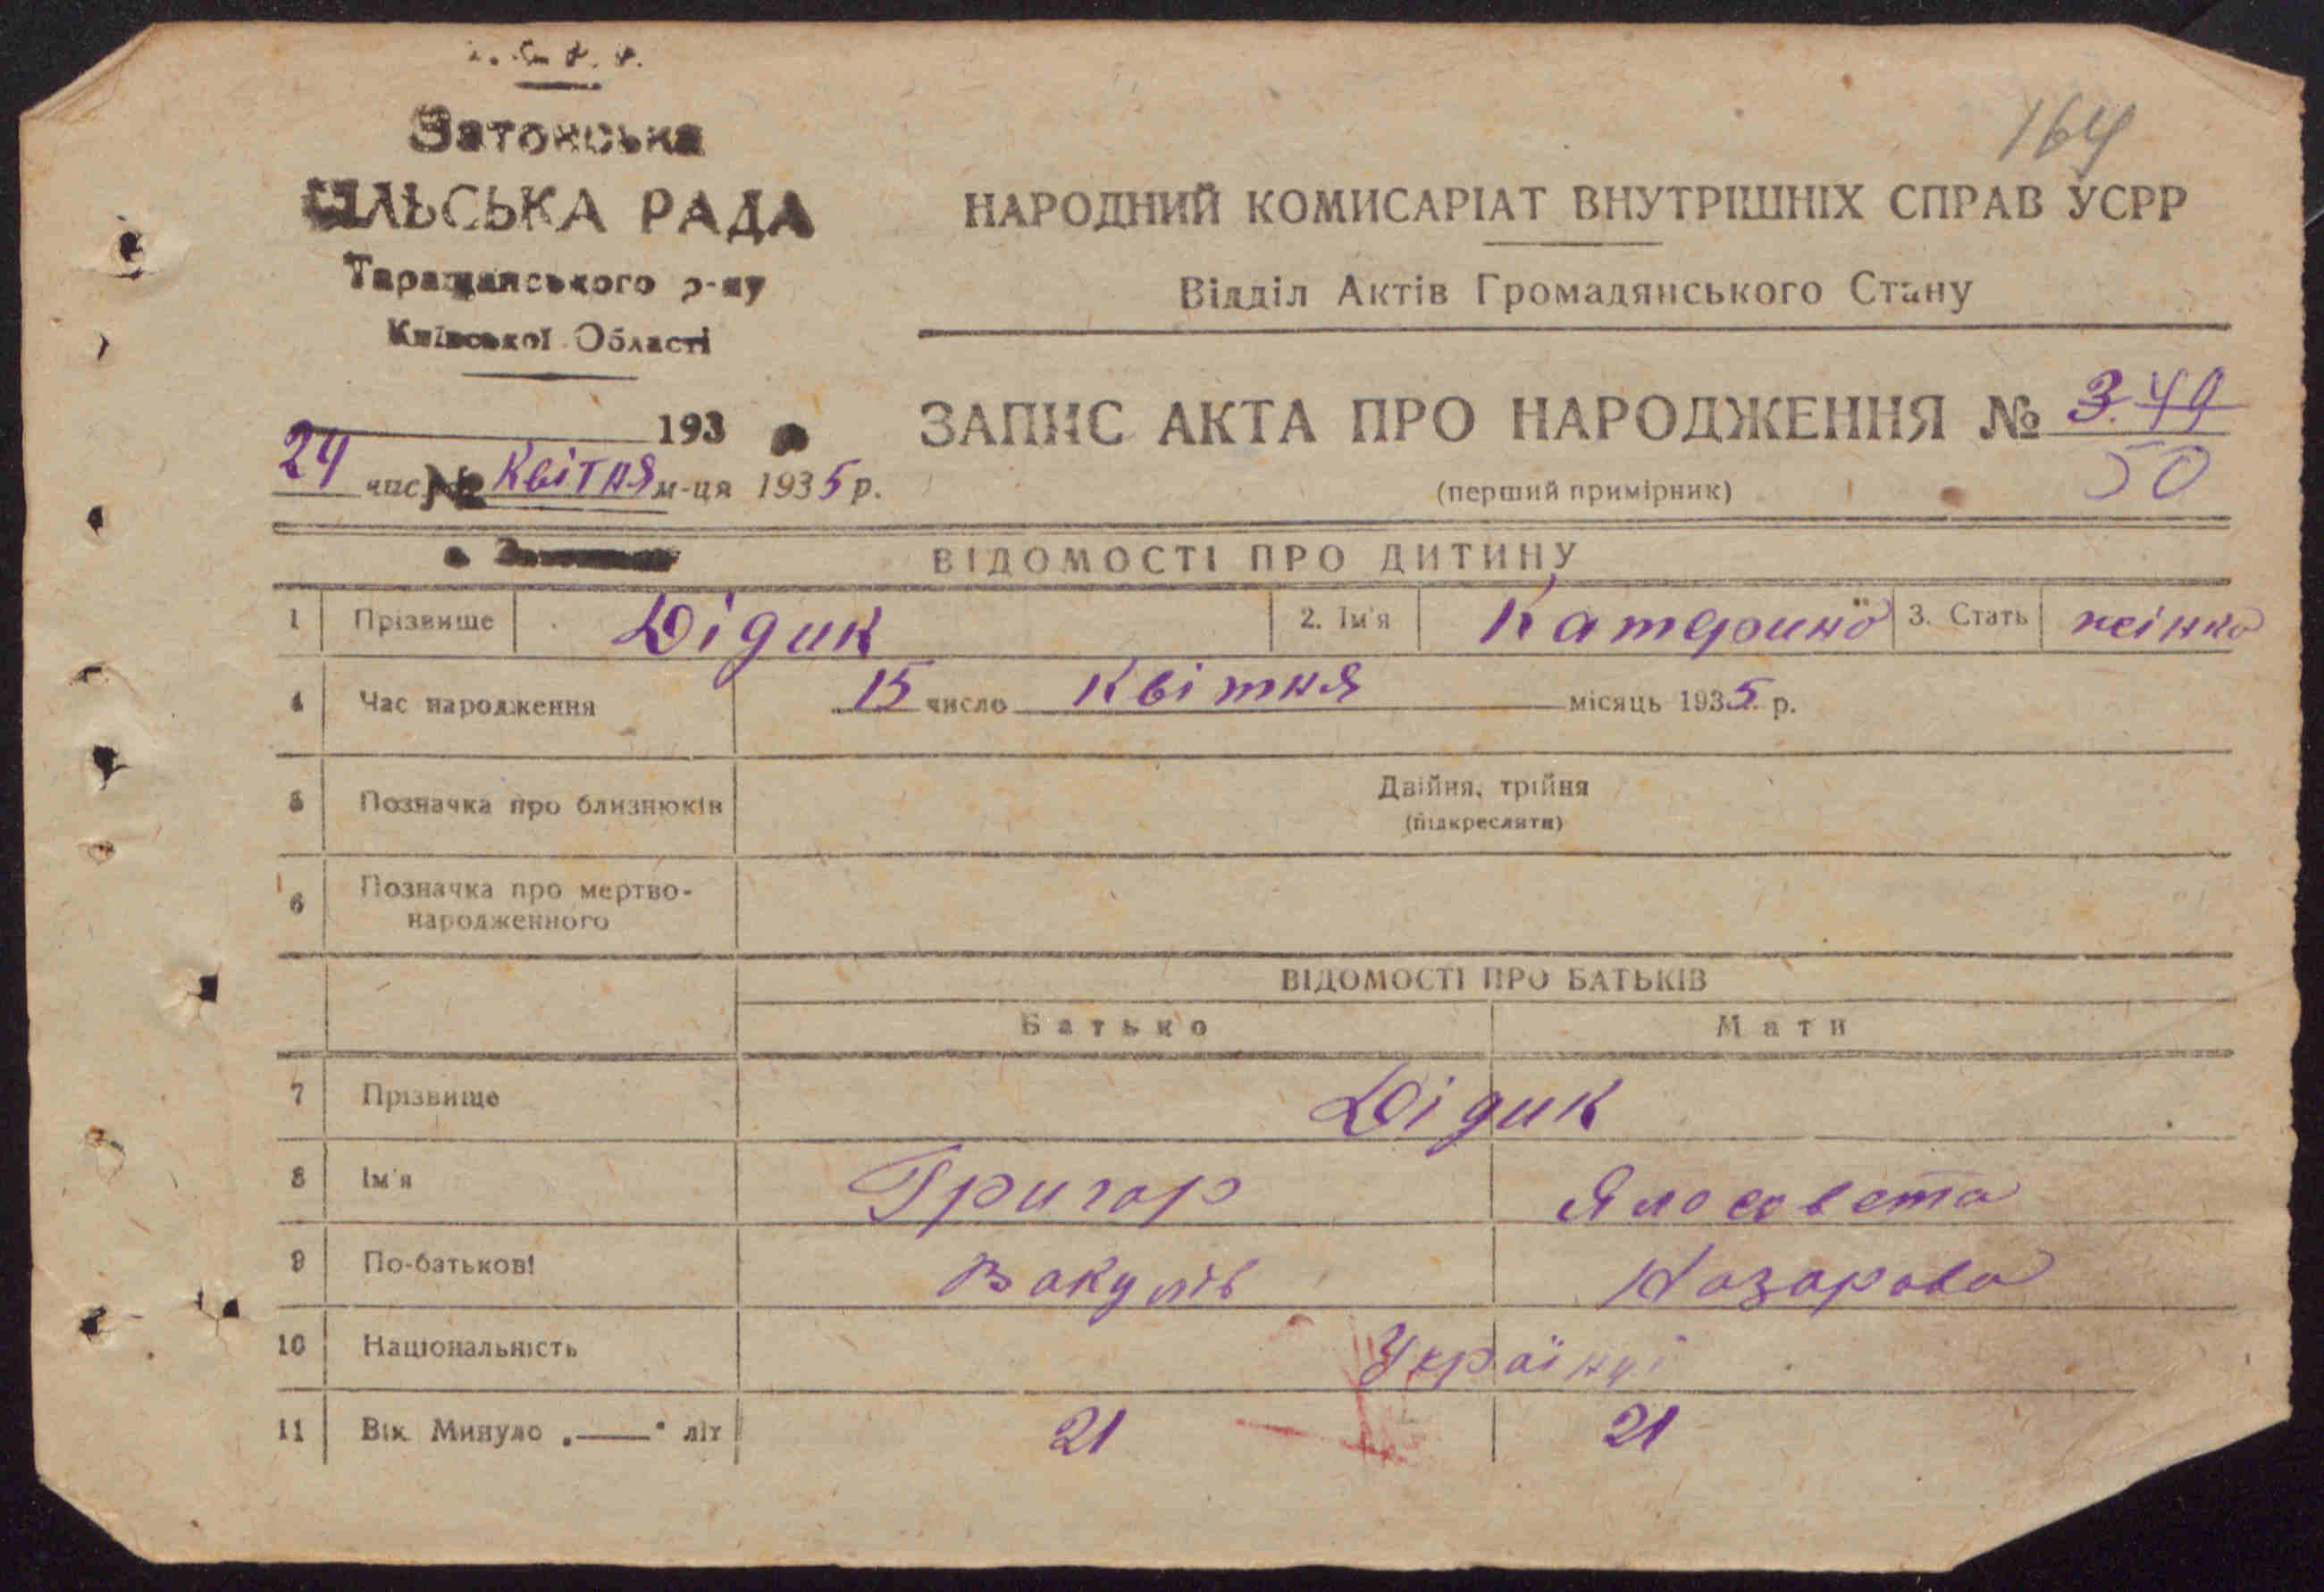 У.С.Р.Р.
Затонська
СІЛЬСЬКА РАДА
Таращанського р-ну
Київської Області
193
№
24 числа квітня м-ця 1935 р.
164
НАРОДНИЙ КОМИСАРІАТ ВНУТРІШНІХ СПРАВ УСРР
Відділ Актів Громадянського Стану
ЗАПИС АКТА ПРО НАРОДЖЕННЯ № 3.49
50
(перший примірник)
ВІДОМОСТІ ПРО ДИТИНУ
1 Прізвище Дідик 2. Ім'я Катерина 3. Стать жінка
4 Час народження 15 число квітня місяць 1935 р.
5 Позначка про близнюків Двійня, трійня
(підкреслити)
6 Позначка про мертво-
народженного
ВІДОМОСТІ ПРО БАТЬКІВ
Батько Мати
7 Прізвище Дідик
8 Ім'я Григор Ялосовета
9 По-батькові Вакулів Назарова
10 Національність Українці
11 Вік. Минуло „——“ літ 21 21